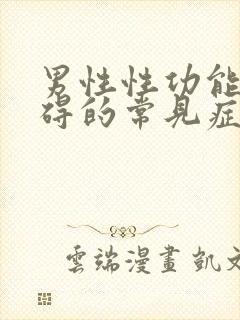 男性性功能
碍的常見症
雲端漫畫 凱文